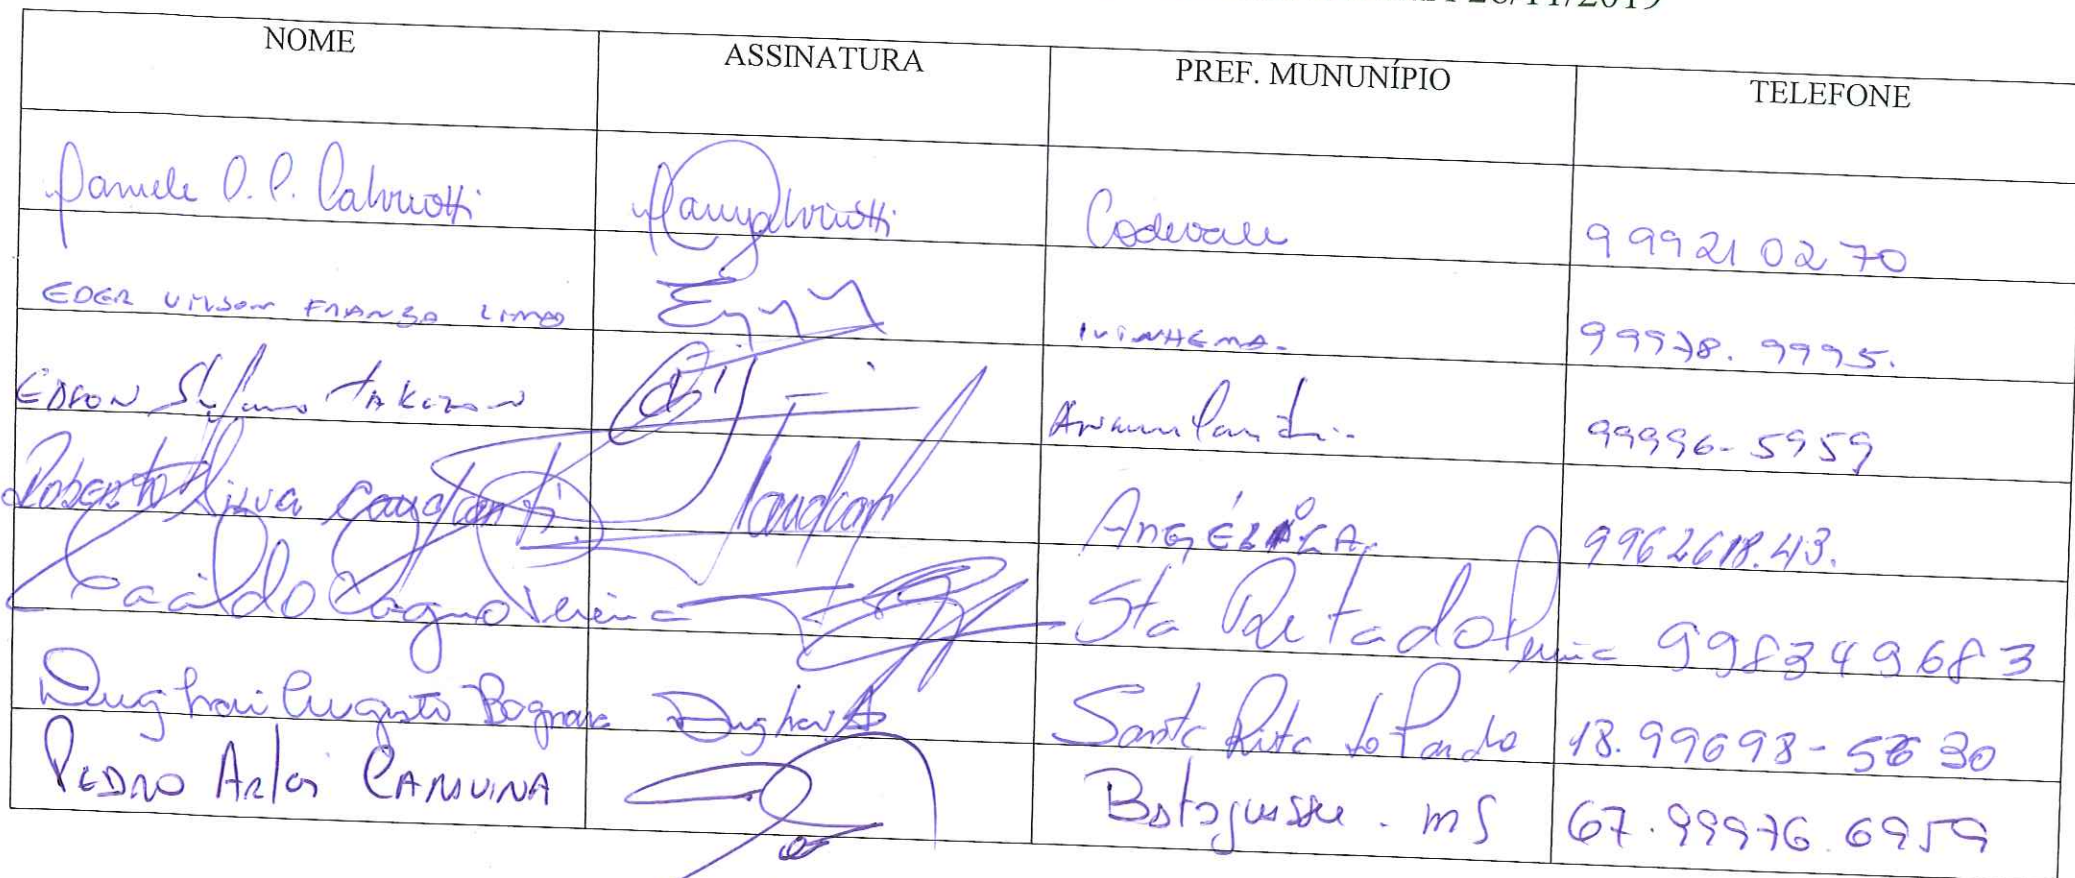 26/11/2019
NOME ASSINATURA PREF. MUNUNÍPIO TELEFONE
Daniele O. P. Calviotti Codevale 999210270
EDER UILSON FRANÇA LIMA IVINHEMA. 99978.9995.
EDSON TAKAZONO 99996-5959
Roberto Silva Cavalcanti ANGÉLICA. 9962618.43.
Cacildo Dagno Pereira Sta Rita do Pardo 998349683
Augusto Bognara Santa Rita do Pardo 18.99698-5630
PEDRO Arlei CARAVINA Bataguassu. MS 67.99976.6959